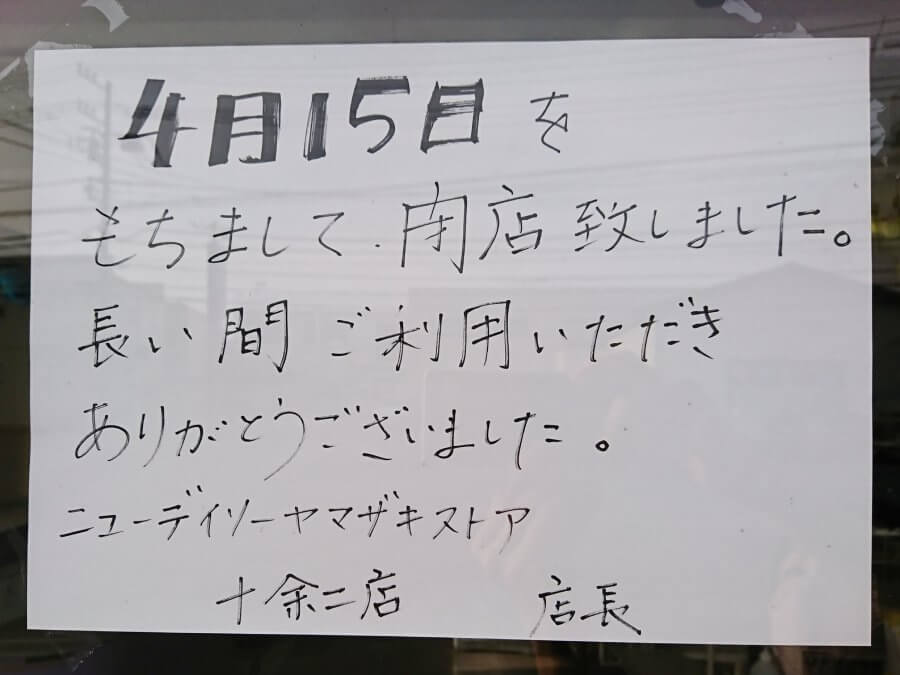 4月15日を
もちまして、閉店致しました。
長い間ご利用いただき
ありがとうございました。
ニューデイリーヤマザキストア
十余二店　店長